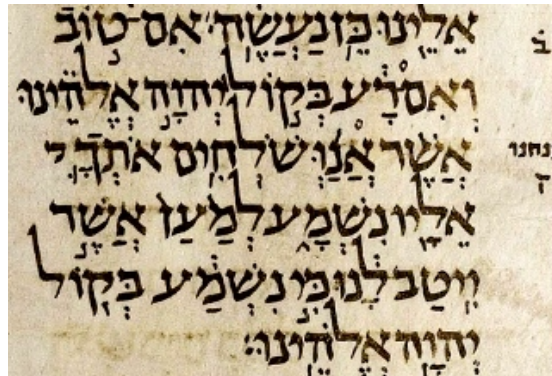 אֵלֵינוּ כֵּן נַעֲשֶׂה׃ אִם־טוֹב
ב֗
וְאִם־רָע בְּקוֹל יְהוָה אֱלֹהֵינוּ
אֲשֶׁר אֲנַוּ שֹׁלְחִים אֹתְךָ
נחנו
אֵלָיו נִשְׁמָע לְמַעַן אֲשֶׁר
יִיטַב לָנוּ כִּי נִשְׁמַע בְּקוֹל
יְהוָה אֱלֹהֵינוּ׃